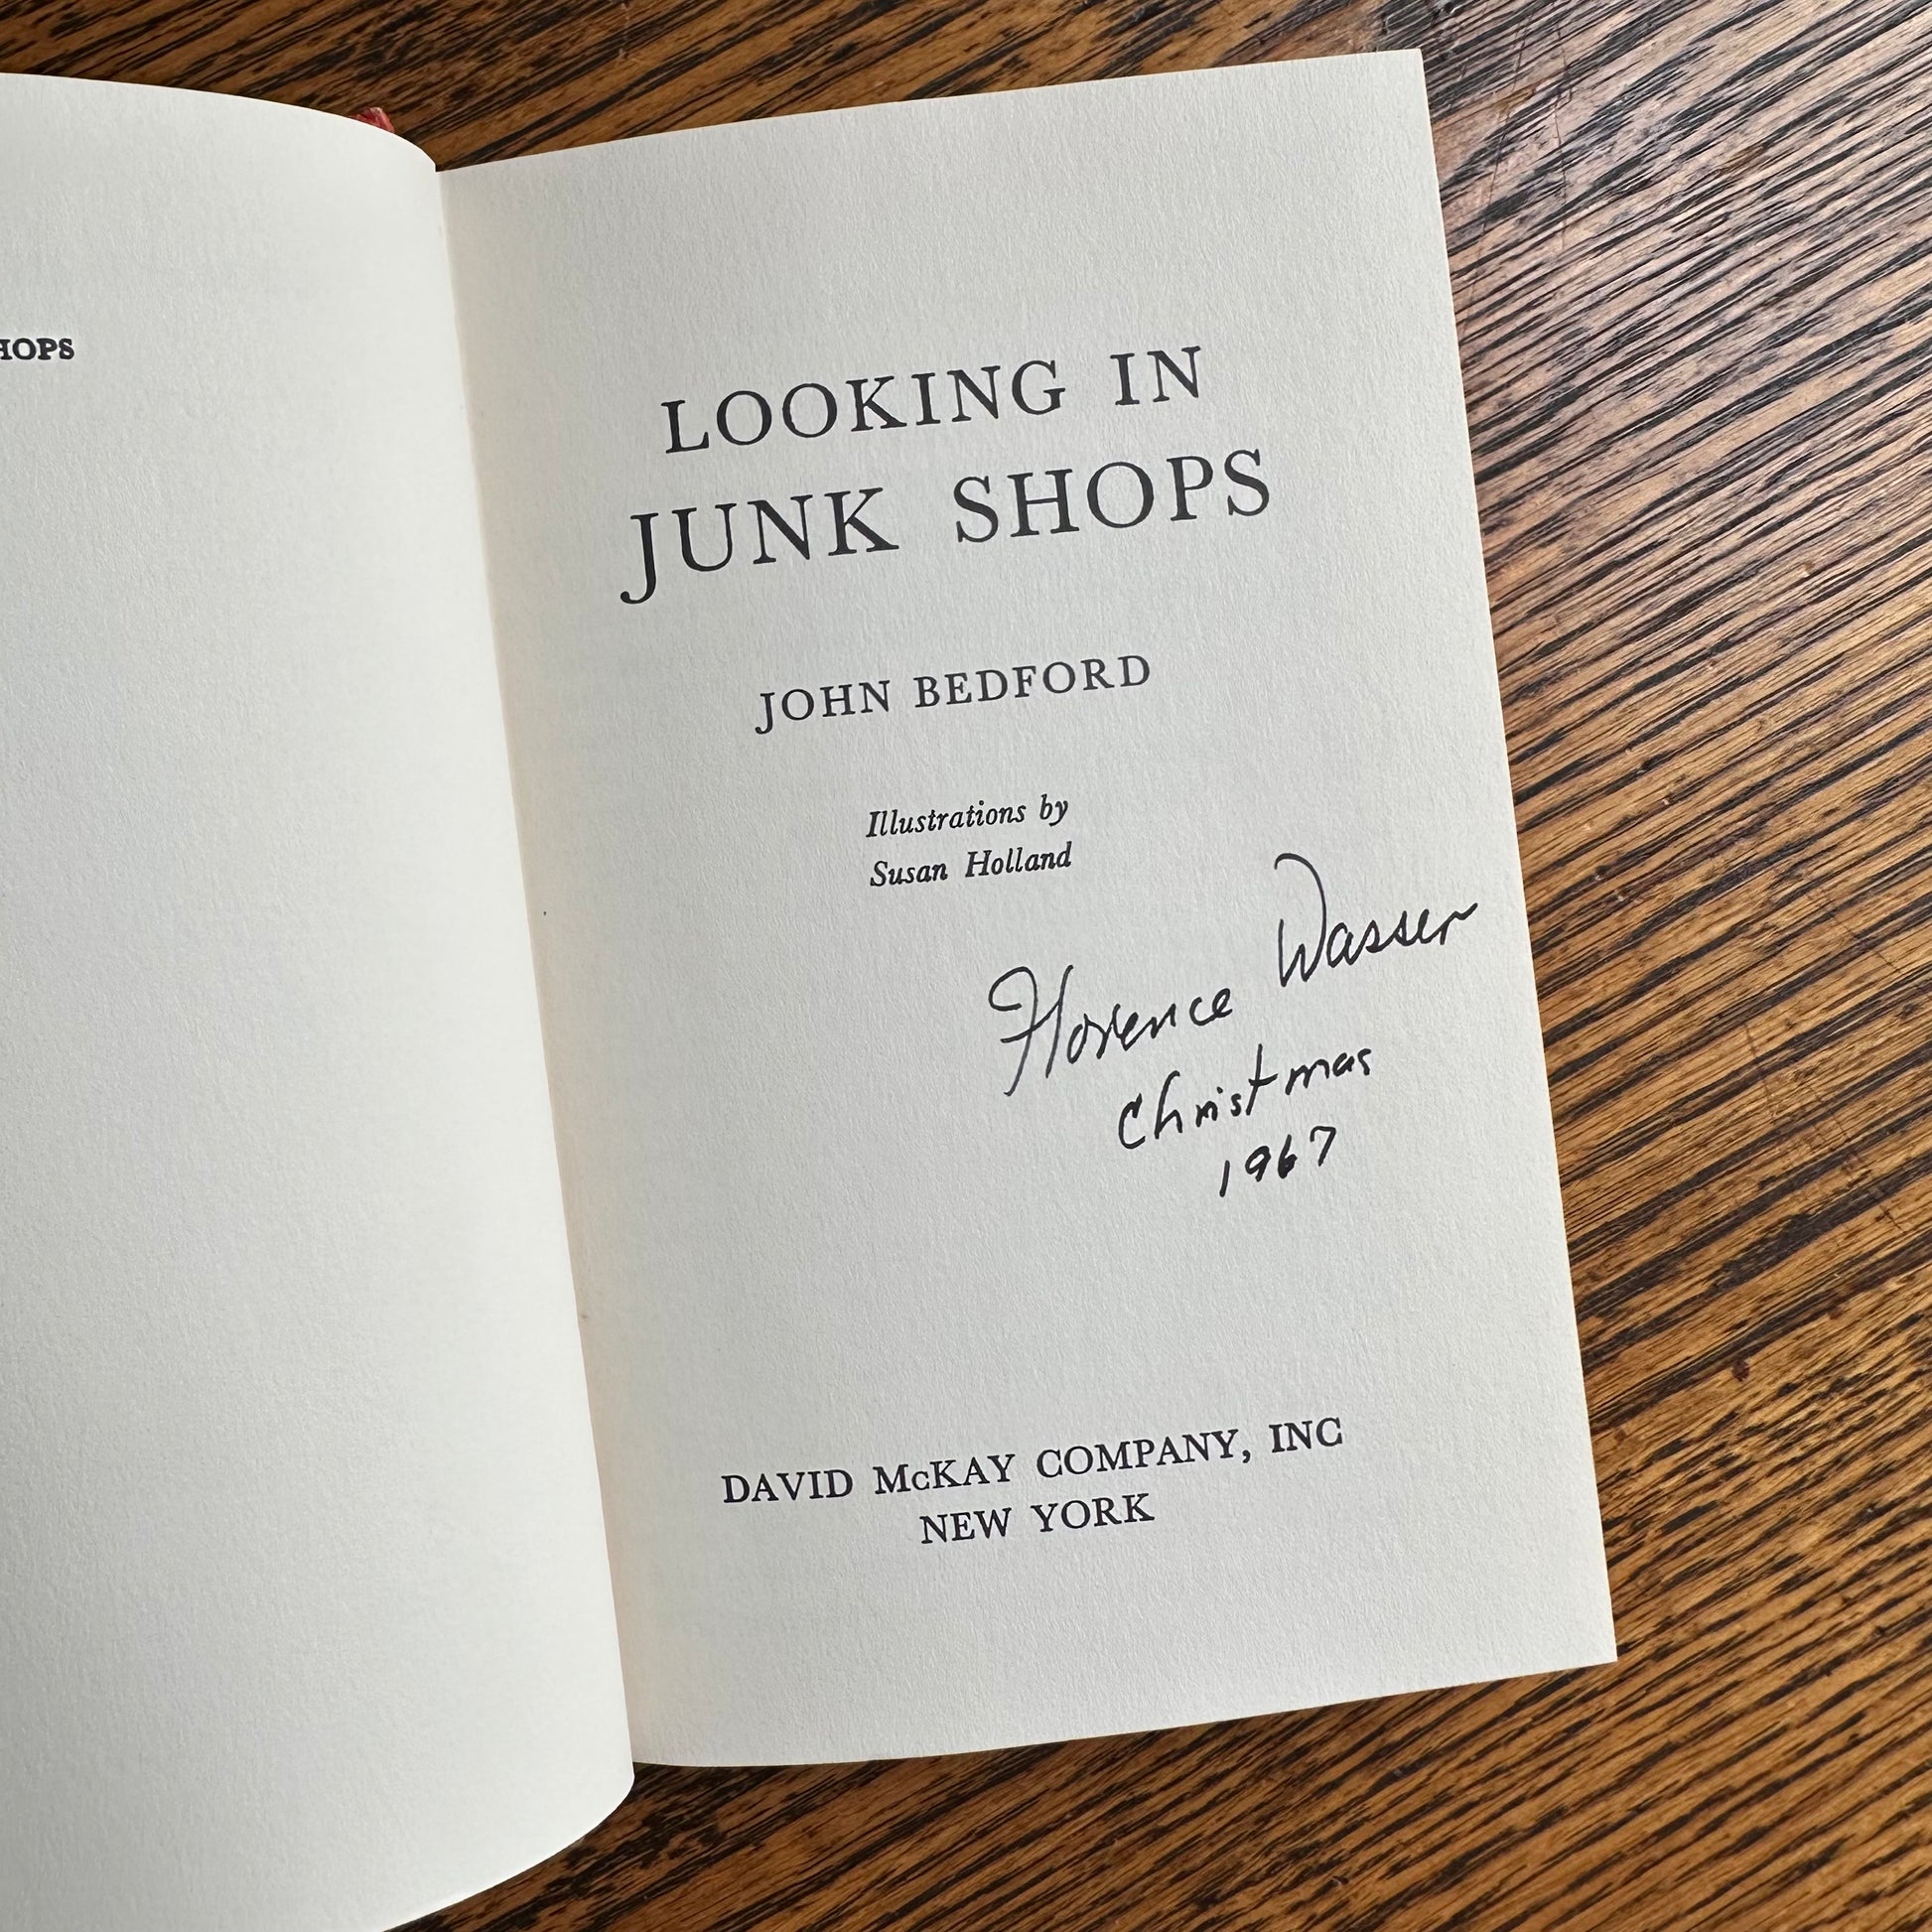 HOPS
LOOKING IN
JUNK SHOPS
JOHN BEDFORD
Illustrations by
Susan Holland
Florence Wasser
Christmas
1967
DAVID McKAY COMPANY, INC
NEW YORK